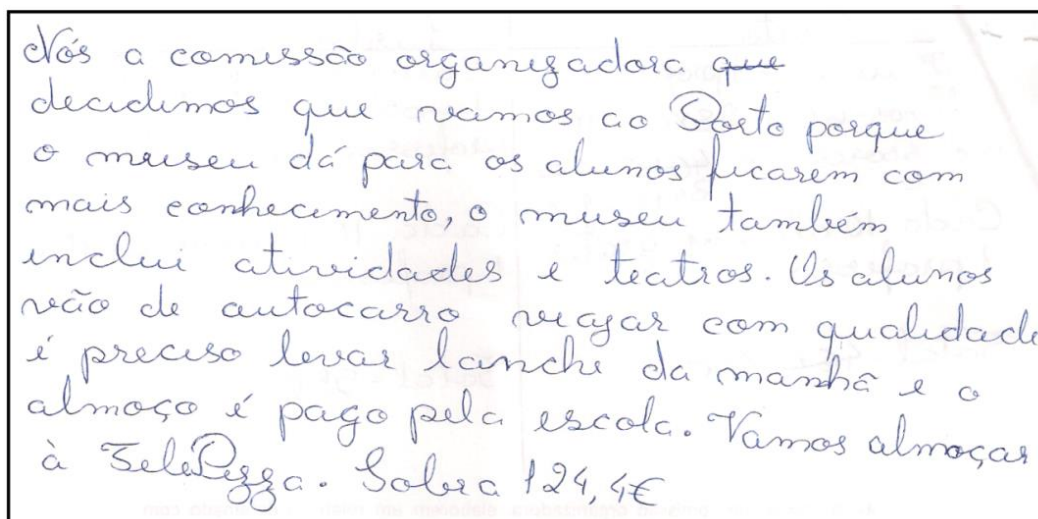 Nós a comissão organizadora que
decidimos que vamos ao Porto porque
o museu dá para os alunos ficarem com
mais conhecimento, o museu também
inclui atividades e teatros. Os alunos
vão de autocarro viajar com qualidade
é preciso levar lanche da manhã e o
almoço é pago pela escola. Vamos almoçar
à TelePizza. Sobra 124,4€